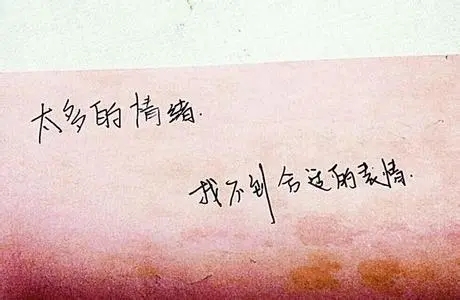 太多的情绪.
找不到合适的表情.